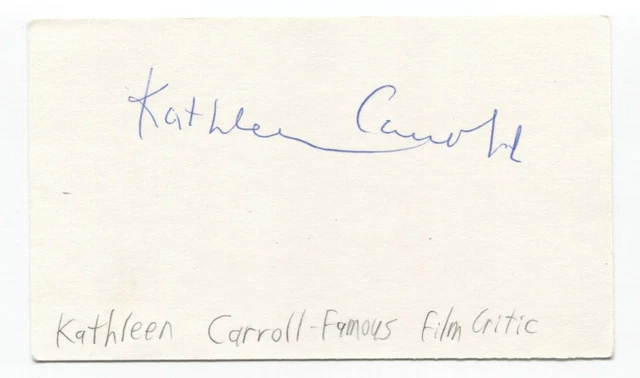 Kathleen Carroll
Kathleen Carroll-Famous Film Critic